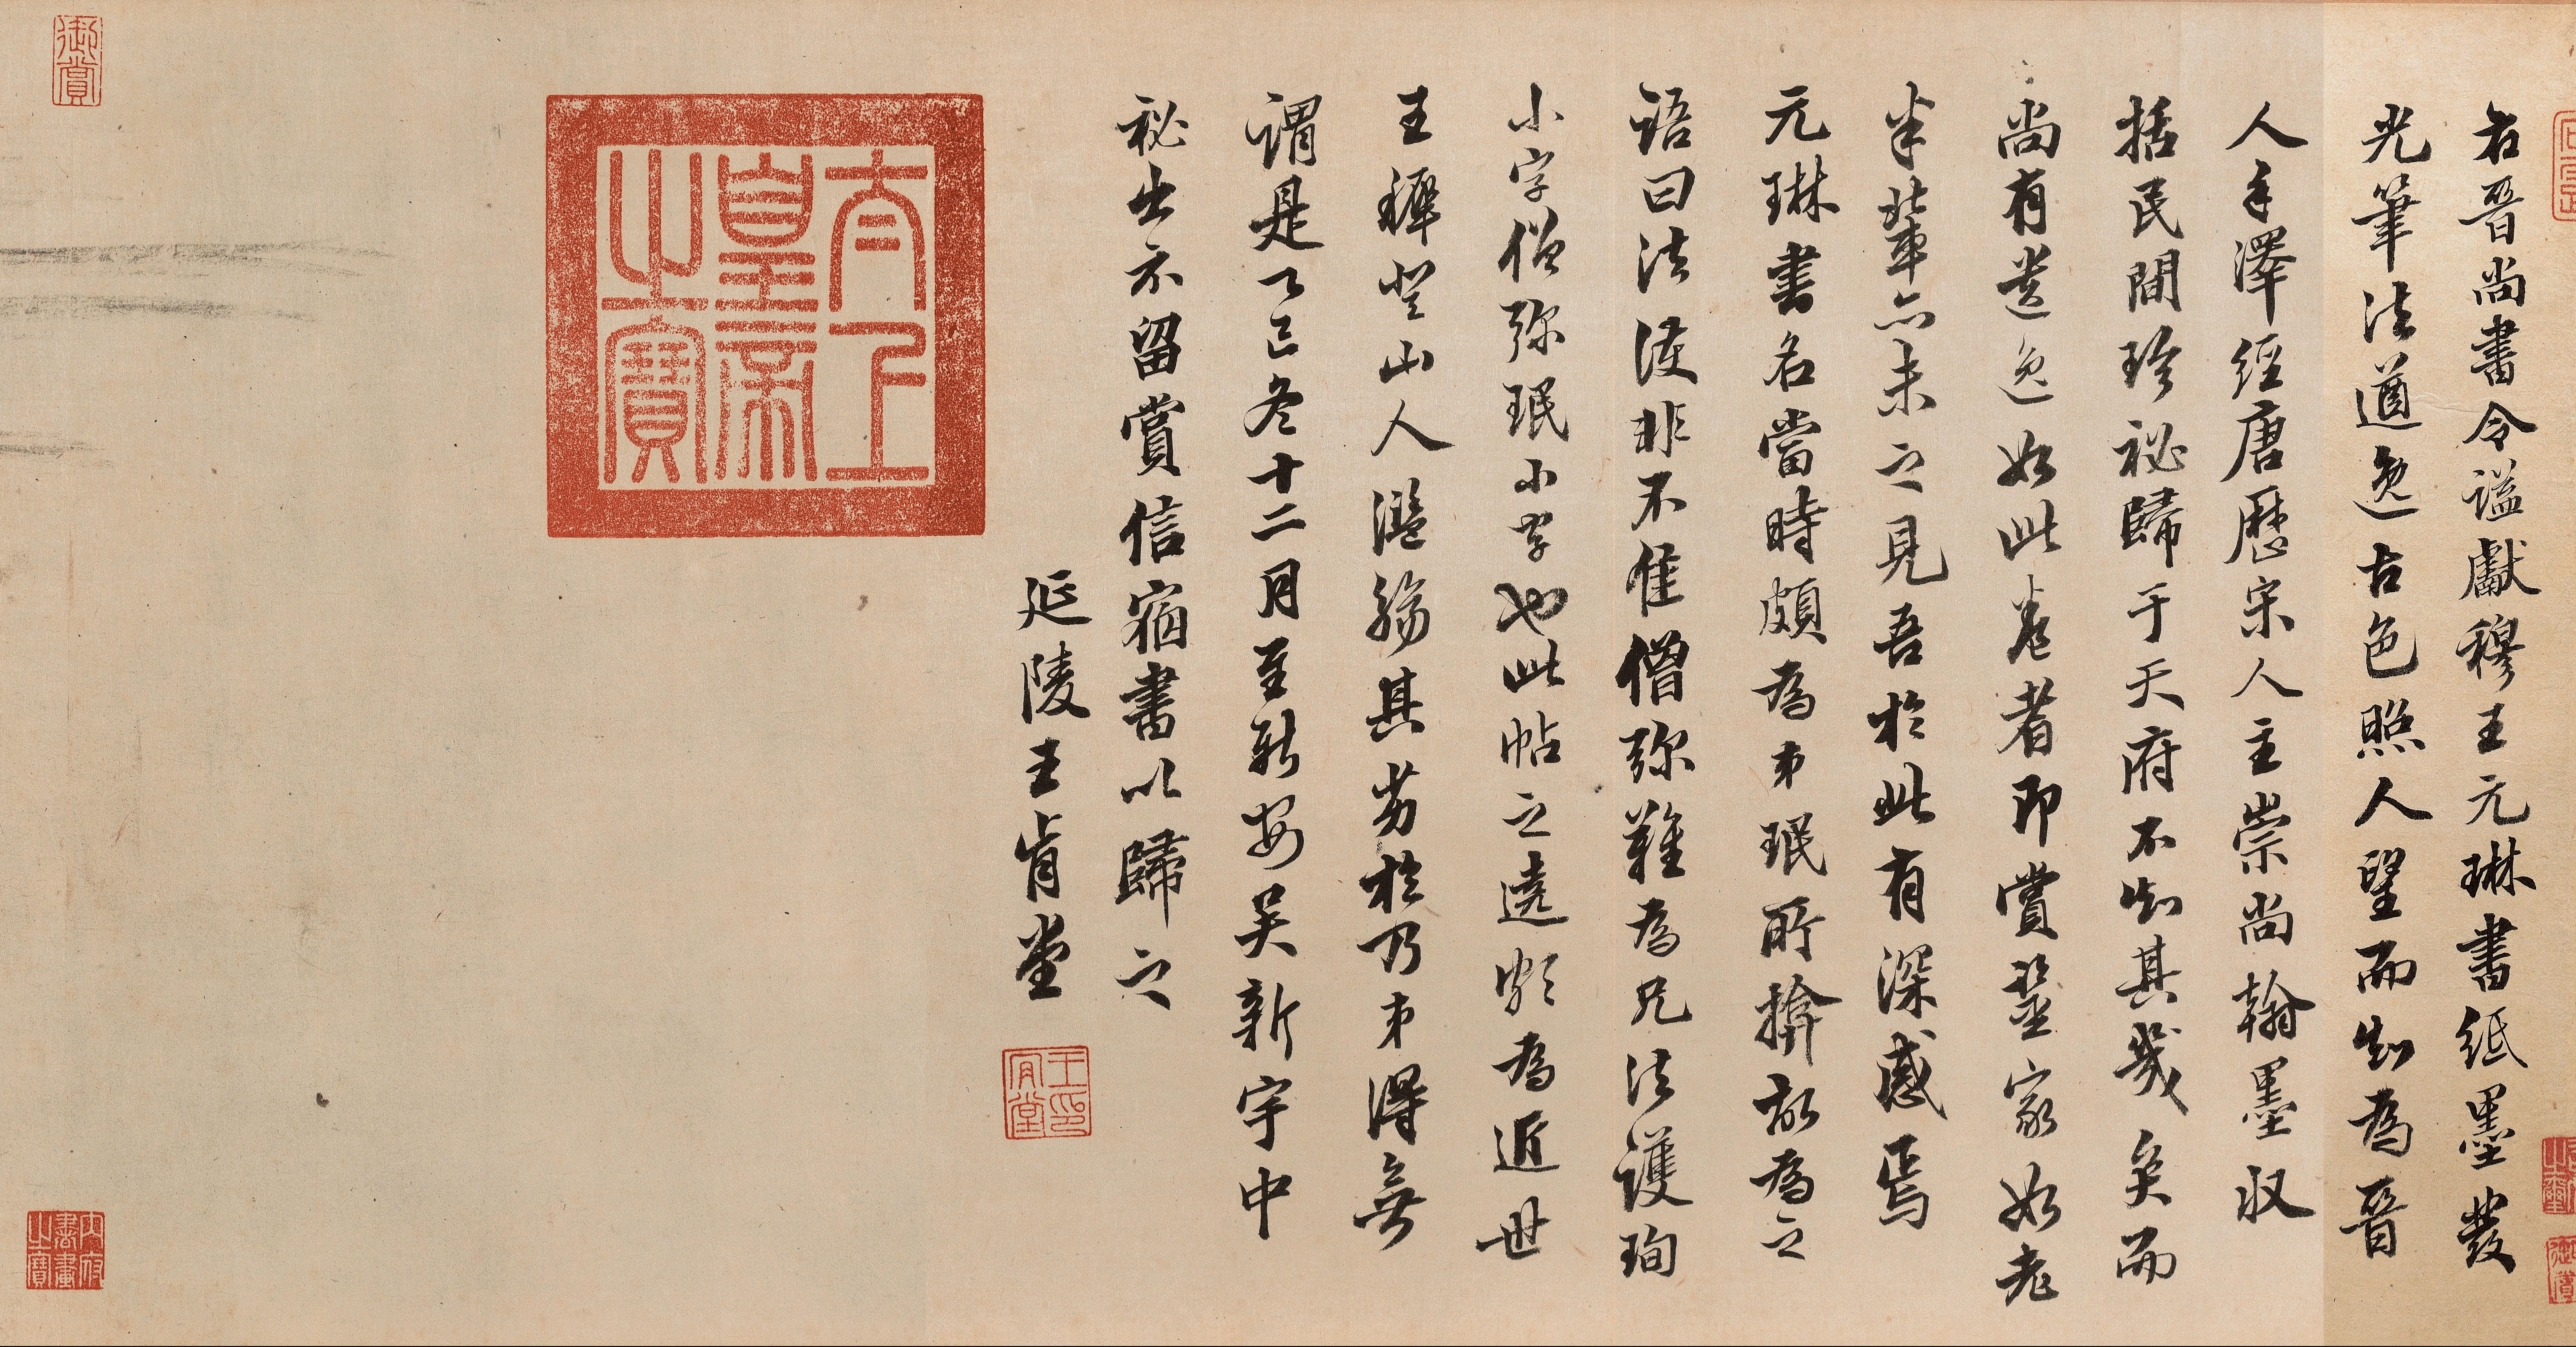 右晉尚書令謚獻穆王元琳書紙墨發
光筆法遒逸古色照人望而知為晉
人手澤經唐歷宋人主崇尚翰墨收
括民間珍祕歸于天府不知其幾矣而
尚有遺逸如此卷者即賞鑒家如老
米輩亦未之見吾於此有深感焉
元琳書名當時頗為弟珉所揜故為之
語曰法護非不佳僧彌難為兄法護珣
小字僧彌珉小字也此帖之遠頗為近世
王穉登山人濫觴其劣於乃弟得無
謂是乙巳冬十二月至新安吳新宇中
祕出示留賞信宿書以歸之
延陵王肯堂
王肯堂印
太上皇帝之寶
御賞
內府書畫之寶